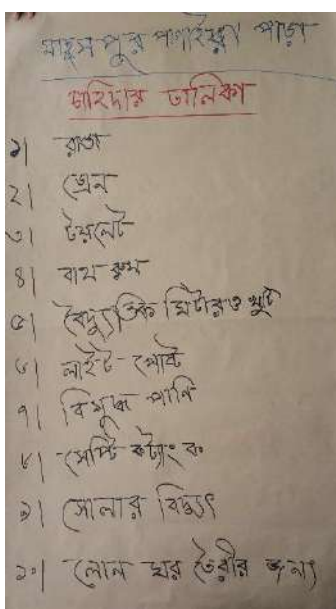 মাহমুদপুর পাড়া
চাহিদার তালিকা
১। রাস্তা
২। ড্রেন
৩। টয়লেট
৪। বাথ রুম
৫। বৈদ্যুতিক মিটার ও খুটি
৬। লাইট-পোষ্ট
৭। বিশুদ্ধ পানি
৮। সেপ্টি কট্যাংক
৯। সোলার বিদ্যুৎ
১০। লোন ঘর তৈরীর জন্য